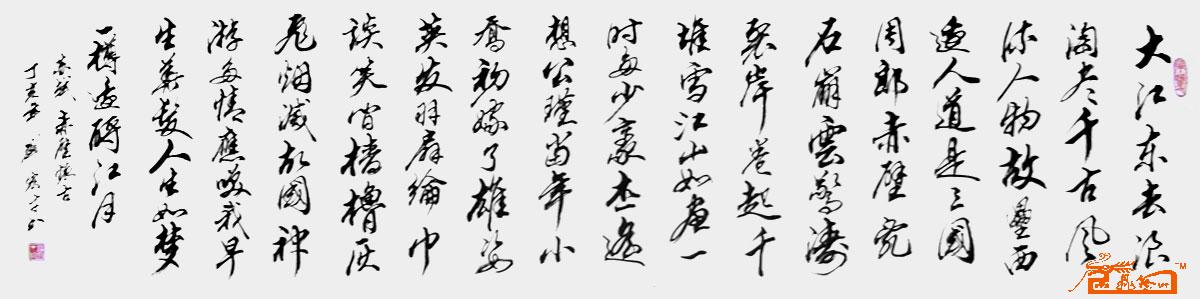 大江东去浪
淘尽千古风
流人物故壘西
边人道是三國
周郎赤壁乱
石崩雲驚涛
裂岸卷起千
堆雪江山如画一
时多少豪杰遥
想公瑾当年小
喬初嫁了雄姿
英发羽扇綸巾
談笑间檣櫓灰
飛烟滅故國神
游多情應笑我早
生華髮人生如梦
一樽还酹江月
赤壁懷古
丁亥年